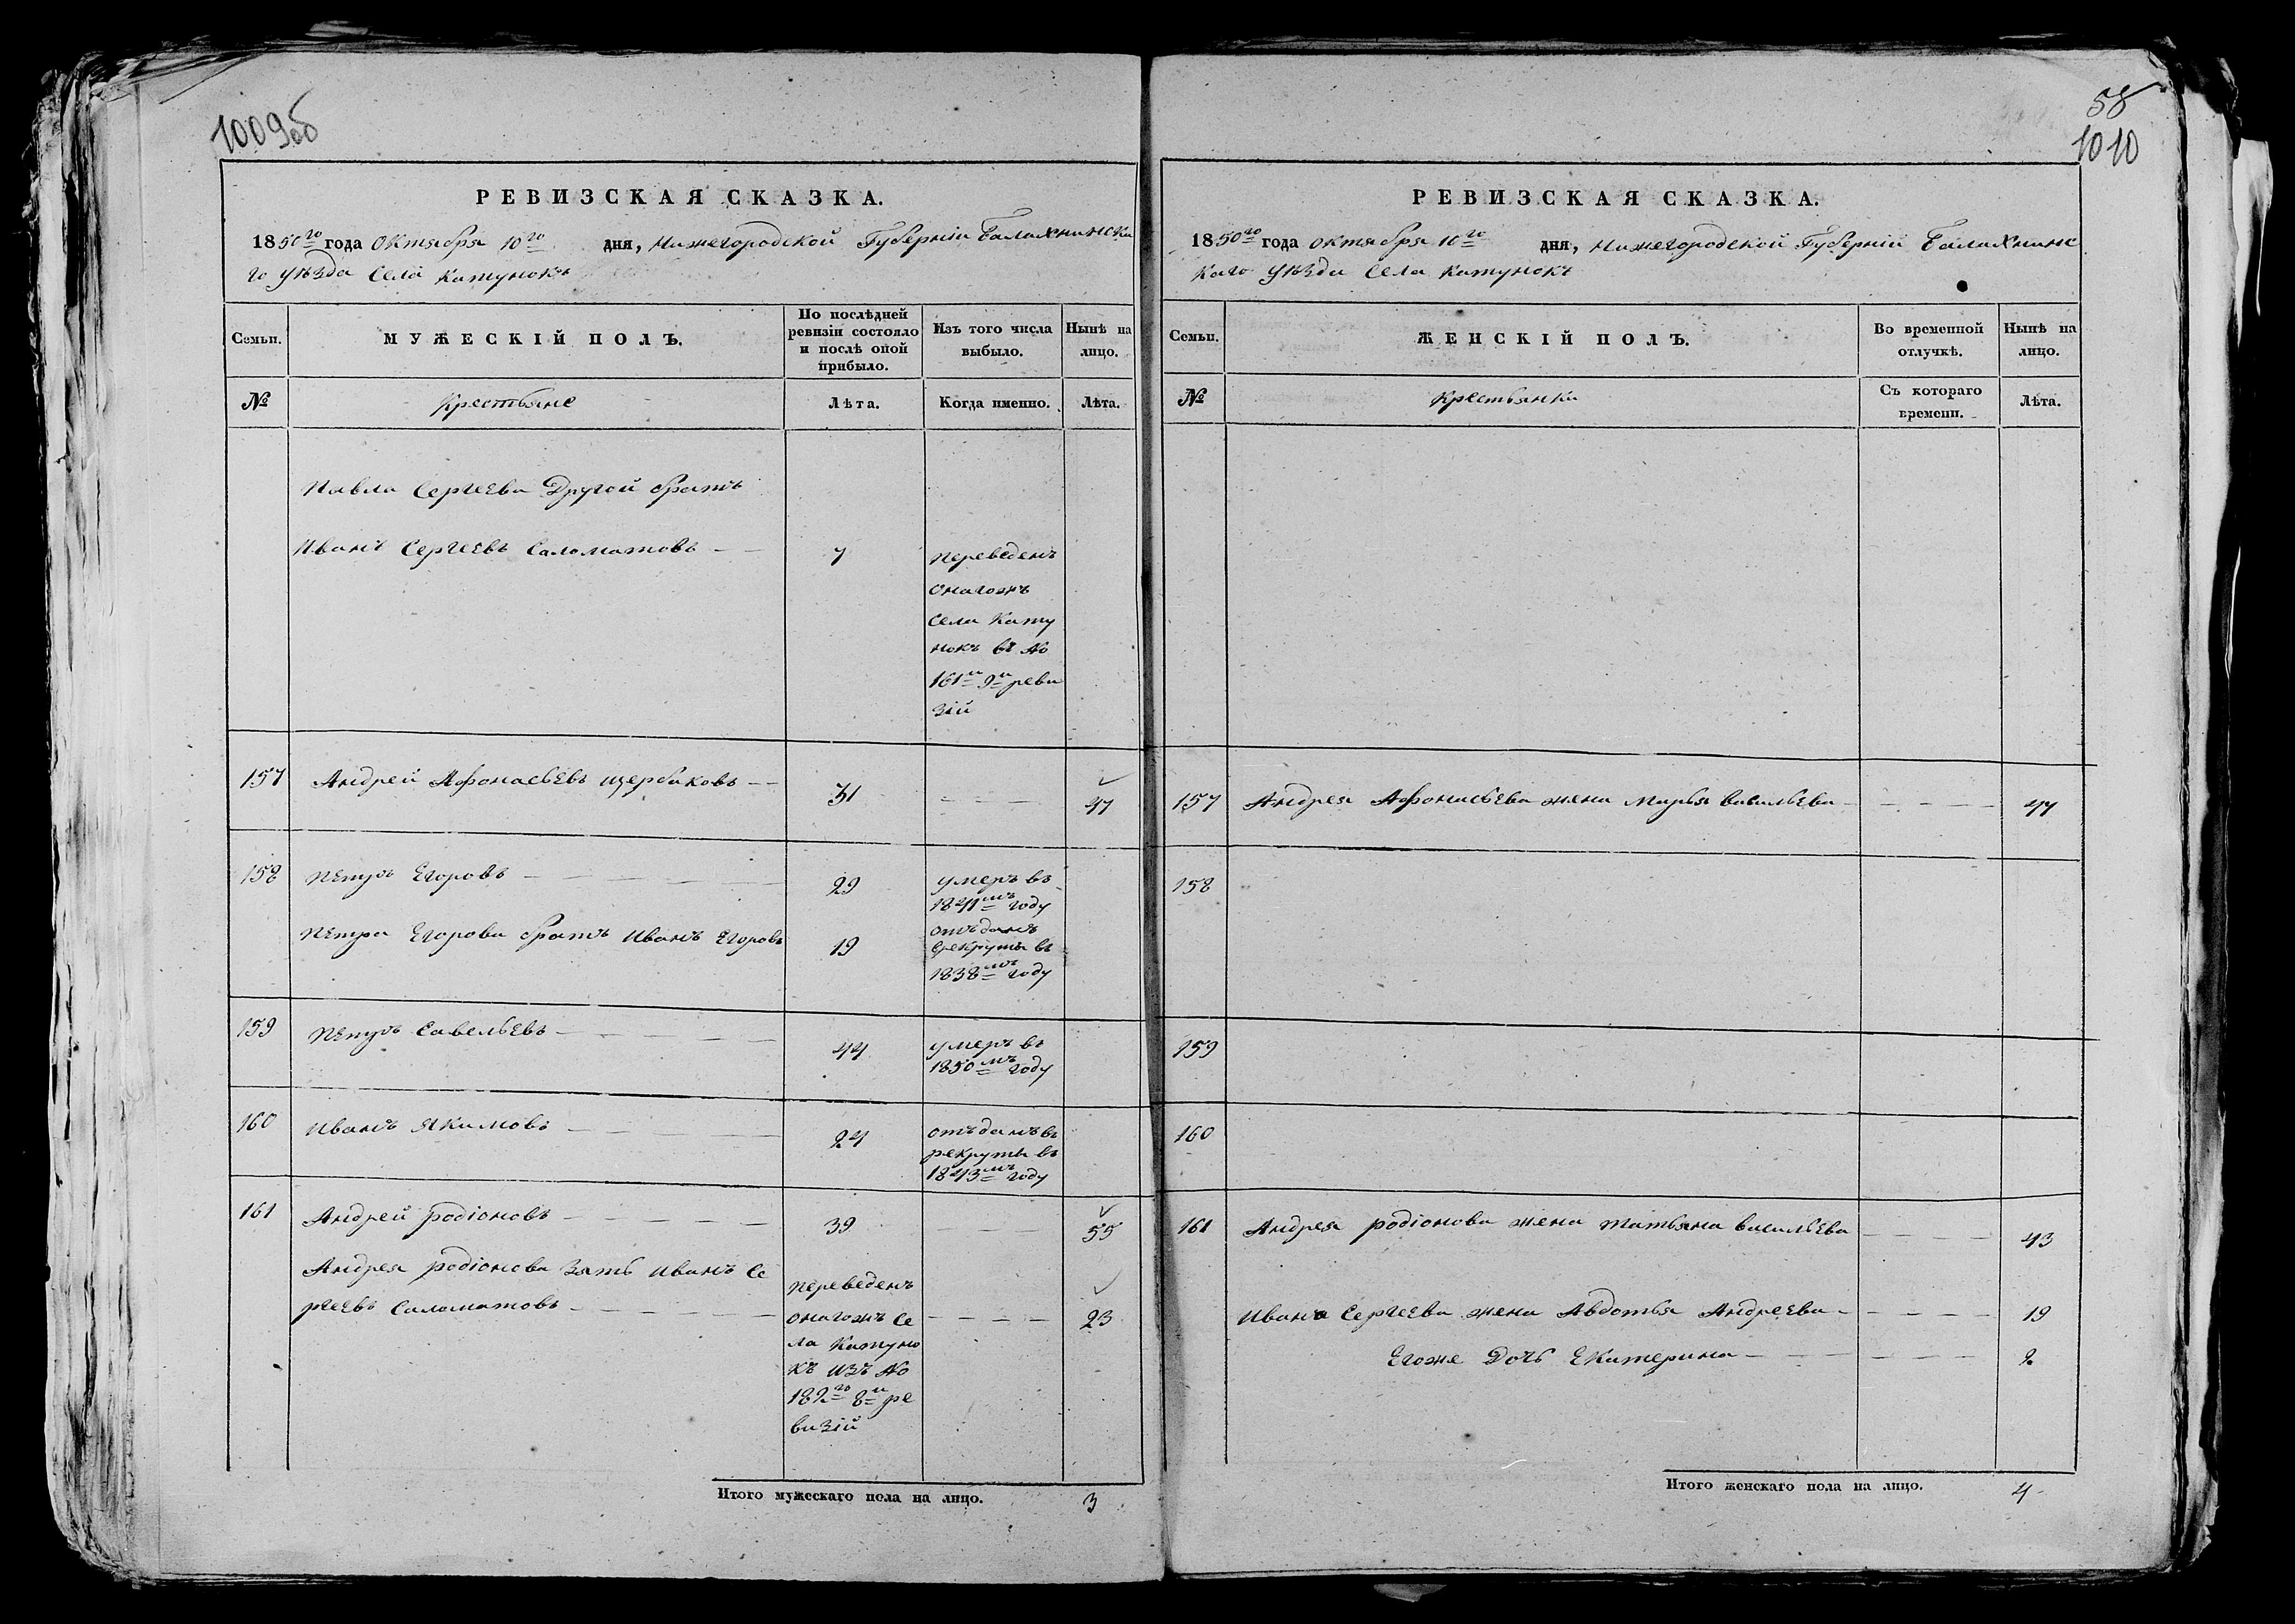 1009об
РЕВИЗСКАЯ СКАЗКА.
1850го года Октября 10го дня, Нижегородской Губерніи Балахнинска
го уѣзда Села Катунокъ
Семьи.
МУЖЕСКІЙ ПОЛЪ.
По послѣдней ревизіи состояло и послѣ оной прибыло.
Изъ того числа выбыло.
Нынѣ на лицо.
№
Крестьяне
Лѣта.
Когда именно.
Лѣта.
Павла Сергеева Другой братъ
Иванъ Сергеевъ Саломатовъ 7 переведенъ
онагожъ
Села Кату
нокъ въ №
161й 9й реви
зій
157 Андрей Афонасьевъ щербаковъ 31 47
158 Петръ Егоровъ 29 умеръ въ
1841мъ году
Петра Егорова братъ Иванъ Егоровъ 19 отъданъ
врекруты въ
1838мъ году
159 Петръ Савельевъ 44 умеръ въ
1850мъ году
160 Иванъ Якимовъ 24 отъданъ въ
рекруты въ
1843мъ году
161 Андрей родіоновъ 39 55
Андрея родіонова зять Иванъ Се
ргеевъ Саломатовъ 23
переведенъ
онагожъ Се
ла Катуно
къ изъ №
182го 8й ре
визій
Итого мужескаго пола на лицо. 3
58
1010
РЕВИЗСКАЯ СКАЗКА.
1850го года октября 10го дня, Нижегородской Губерніи Балахнинс
каго уѣзда Села Катунокъ
Семьи.
ЖЕНСКІЙ ПОЛЪ.
Во временной отлучкѣ.
Нынѣ на лицо.
№
Крестьянки
Съ котораго времени.
Лѣта.
157 Андрея Афонасьева жена Марья васильева 47
158
159
160
161 Андрея родіонова жена татьяна васильева 43
Ивана Сергеева жена Авдотья Андреева 19
Егоже Дочь Екатерина 2
Итого женскаго пола на лицо. 4